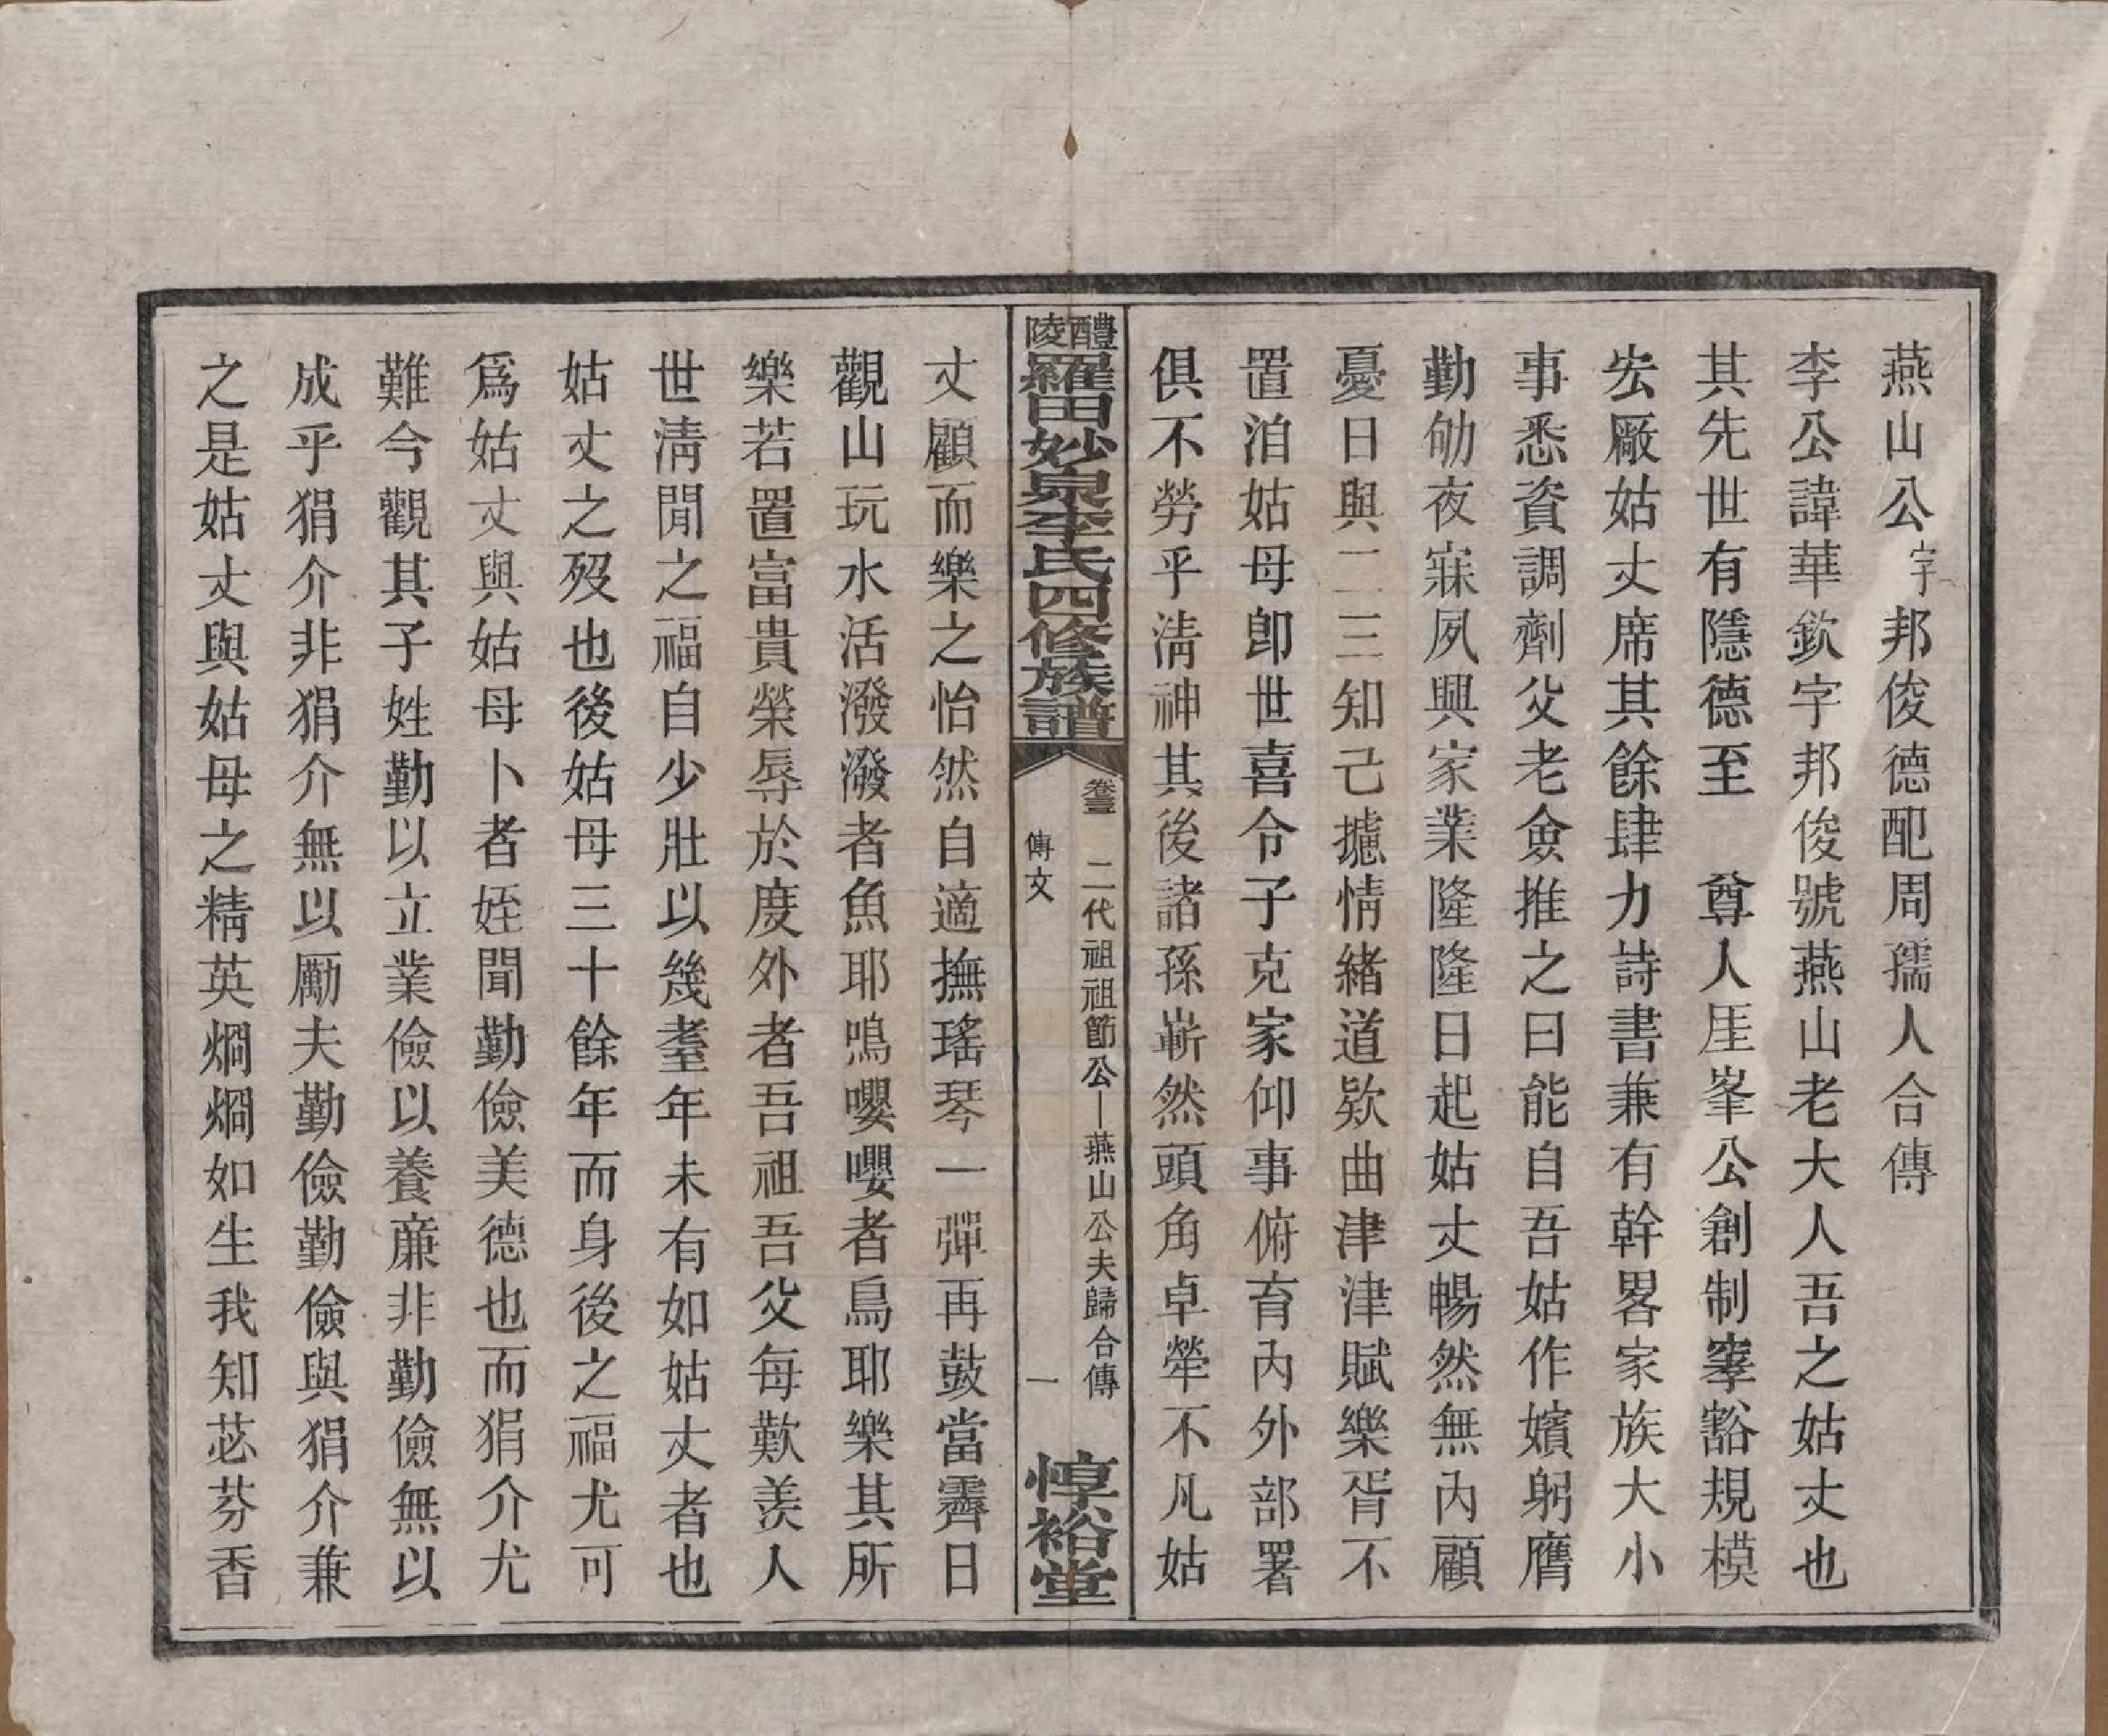 燕山公字邦俊德配周孺人合傳
李公諱華欽字邦俊號燕山老大人吾之姑丈也
其先世有隱德至　尊人厓峯公創制寥豁規模
宏厰姑丈席其餘肆力詩書兼有幹畧家族大小
事悉資調劑父老僉推之曰能自吾姑作嬪躬膺
勤劬夜寐夙興家業隆隆日起姑丈暢然無內顧
憂日與二三知己攄情緒道欵曲津津賦樂胥不
置洎姑母卽世喜令子克家仰事俯育內外部署
俱不勞乎淸神其後諸孫嶄然頭角卓犖不凡姑
醴陵羅田妙泉李氏四修族譜
卷三　二代祖祖節公—燕山公夫歸合傳
傳文
一
惇裕堂
丈顧而樂之怡然自適撫瑤琴一彈再鼓當霽日
觀山玩水活潑潑者魚耶鳴嚶嚶者鳥耶樂其所
樂若置富貴榮辱於度外者吾祖吾父每歎羨人
世淸閒之福自少壯以幾耋年未有如姑丈者也
姑丈之歿也後姑母三十餘年而身後之福尤可
爲姑丈與姑母卜者姪聞勤儉美德也而狷介尤
難今觀其子姓勤以立業儉以養亷非勤儉無以
成乎狷介非狷介無以勵夫勤儉勤儉與狷介兼
之是姑丈與姑母之精英烱烱如生我知苾芬香